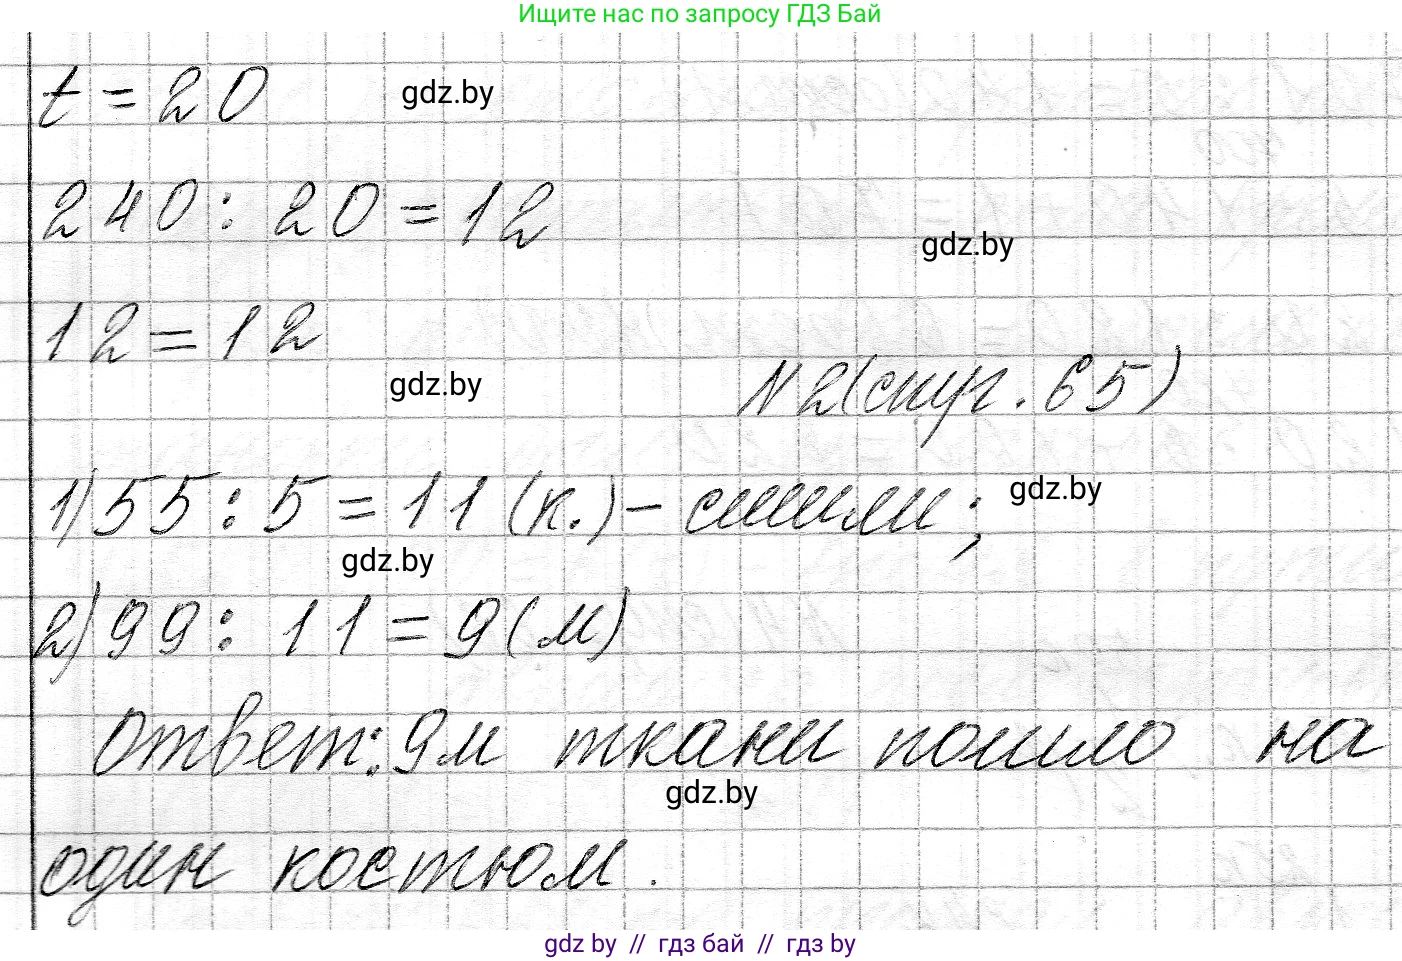 Ищите нас по запросу ГДЗ Бай
t = 20
gdz.by
240 : 20 = 12
gdz.by
12 = 12
gdz.by
N2(стр. 65)
1) 55 : 5 = 11 (к.) - сшили;
gdz.by
gdz.by
2) 99 : 11 = 9 (м)
Ответ: 9м ткани пошло на
gdz.by
один костюм.
gdz by // гдз бай // гдз by